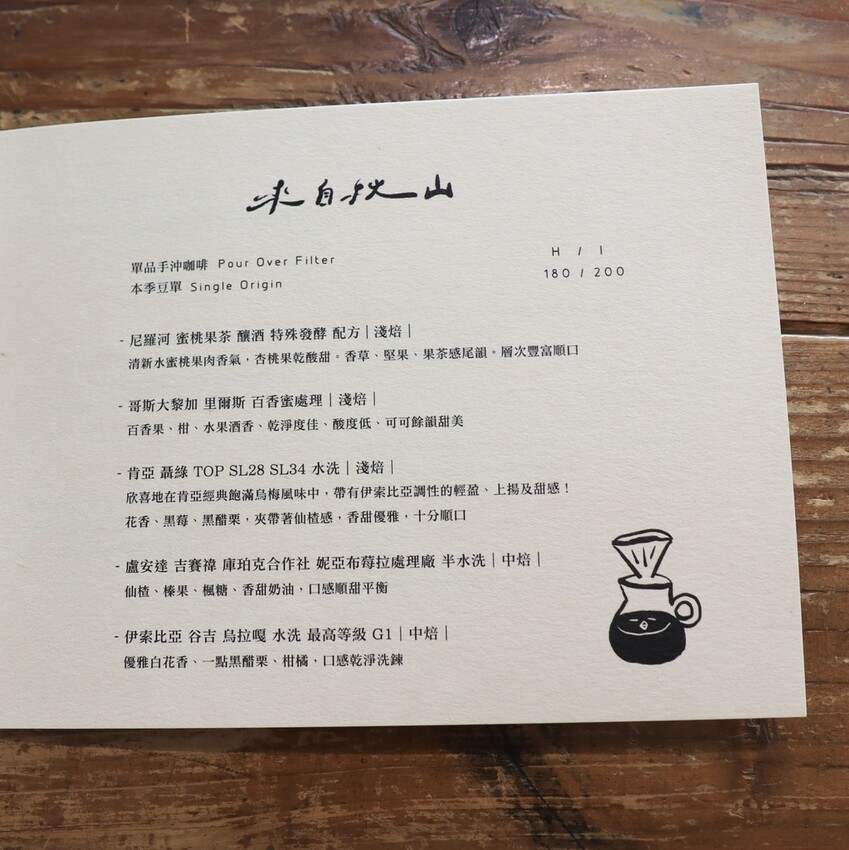 來自秋山
單品手沖咖啡 Pour Over Filter
本季豆單 Single Origin
H / I
180 / 200
- 尼羅河 蜜桃果茶 釀酒 特殊發酵 配方｜淺焙｜
清新水蜜桃果肉香氣，杏桃果乾酸甜。香草、堅果、果茶感尾韻。層次豐富順口
- 哥斯大黎加 里爾斯 百香蜜處理｜淺焙｜
百香果、柑、水果酒香、乾淨度佳、酸度低、可可餘韻甜美
- 肯亞 聶綠 TOP SL28 SL34 水洗｜淺焙｜
欣喜地在肯亞經典飽滿烏梅風味中，帶有伊索比亞調性的輕盈、上揚及甜感！
花香、黑莓、黑醋栗，夾帶著仙楂感，香甜優雅，十分順口
- 盧安達 吉賽褘 庫珀克合作社 妮亞布莓拉處理廠 半水洗｜中焙｜
仙楂、榛果、楓糖、香甜奶油，口感順甜平衡
- 伊索比亞 谷吉 烏拉嘎 水洗 最高等級 G1｜中焙｜
優雅白花香、一點黑醋栗、柑橘，口感乾淨洗鍊